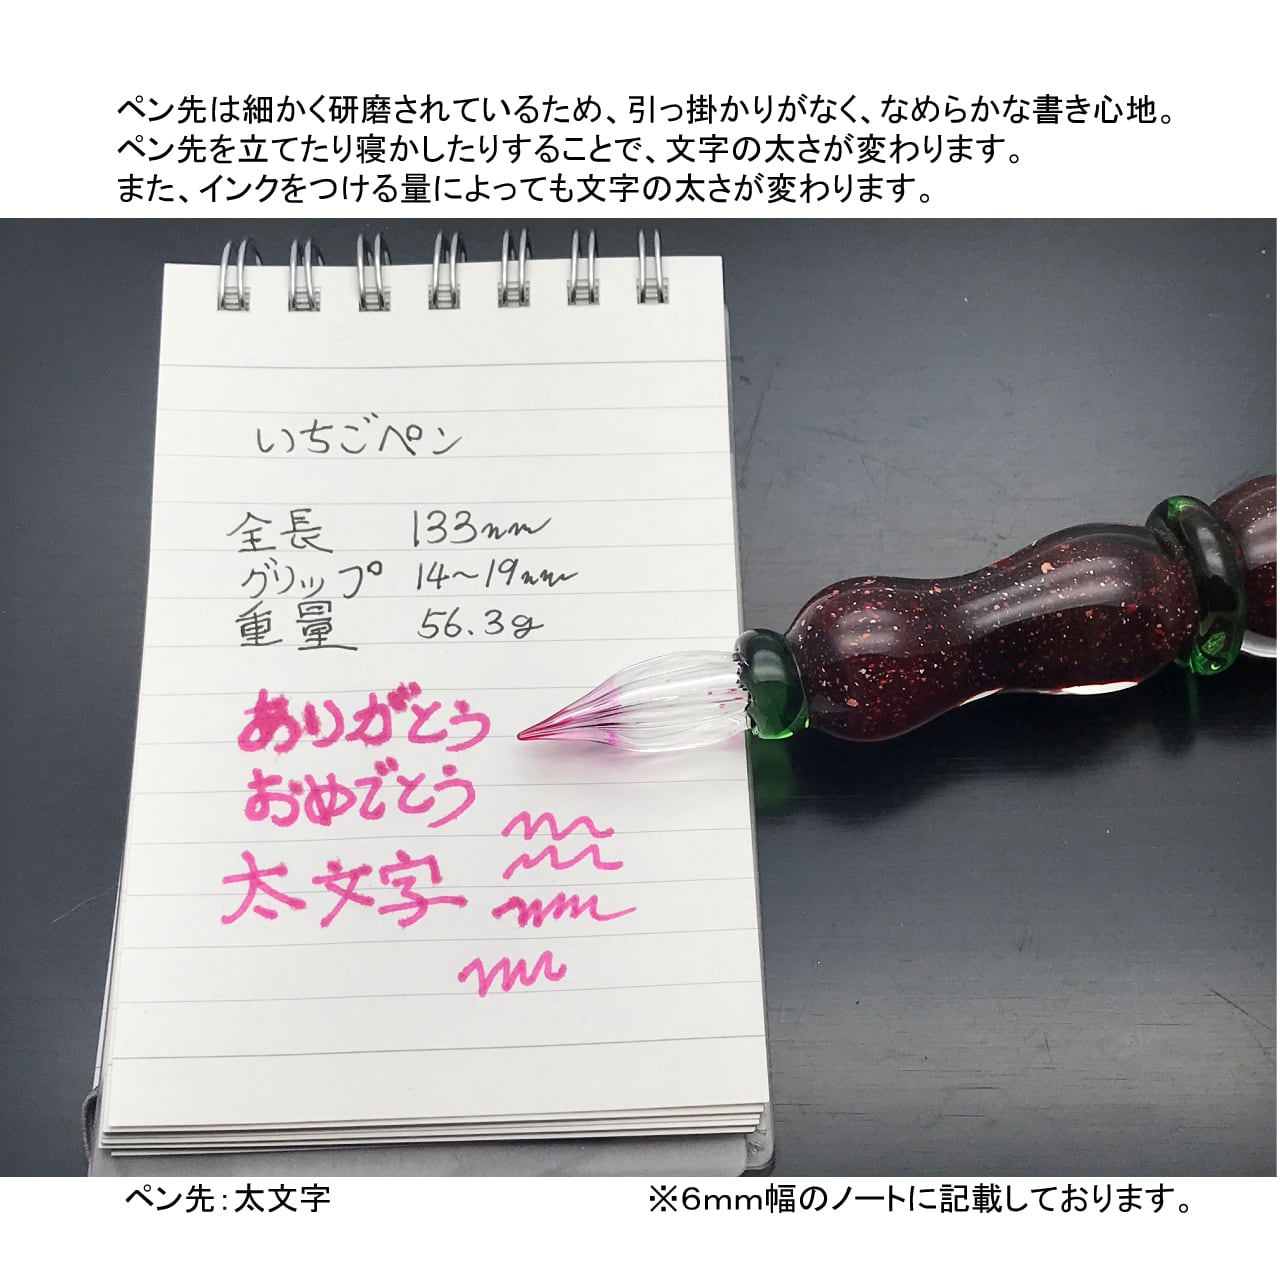 ペン先は細かく研磨されているため、引っ掛かりがなく、なめらかな書き心地。
ペン先を立てたり寝かしたりすることで、文字の太さが変わります。
また、インクをつける量によっても文字の太さが変わります。
いちごペン
全長 133mm
グリップ 14～19mm
重量 56.3g
ありがとう
おめでとう
太文字
ペン先：太文字 ※6mm幅のノートに記載しております。